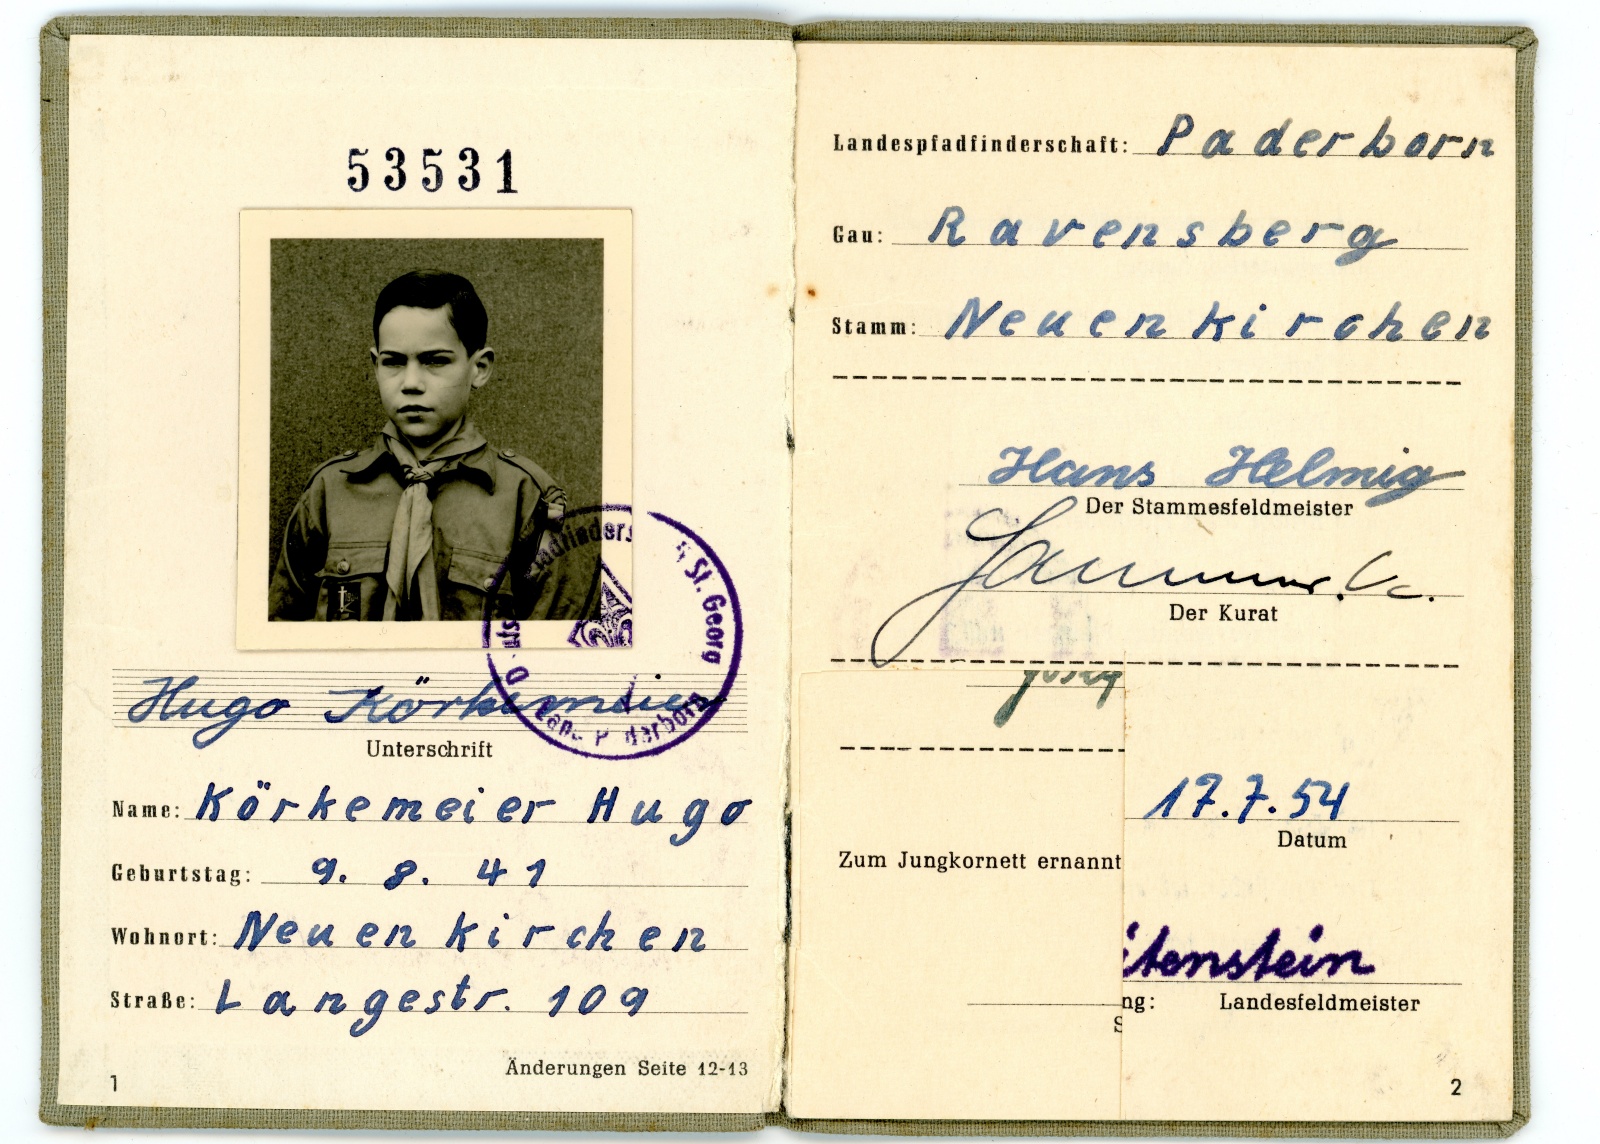 53531
St. Georg
Hugo Körkemeier
Unterschrift
Name: Körkemeier Hugo
Geburtstag: 9. 8. 41
Wohnort: Neuenkirchen
Straße: Langestr. 109
Änderungen Seite 12-13
1
Landespfadfinderschaft: Paderborn
Gau: Ravensberg
Stamm: Neuenkirchen
Hans Helmig
Der Stammesfeldmeister
Der Kurat
17.7.54
Datum
Zum Jungkornett ernannt
itenstein
ng: Landesfeldmeister
S
2